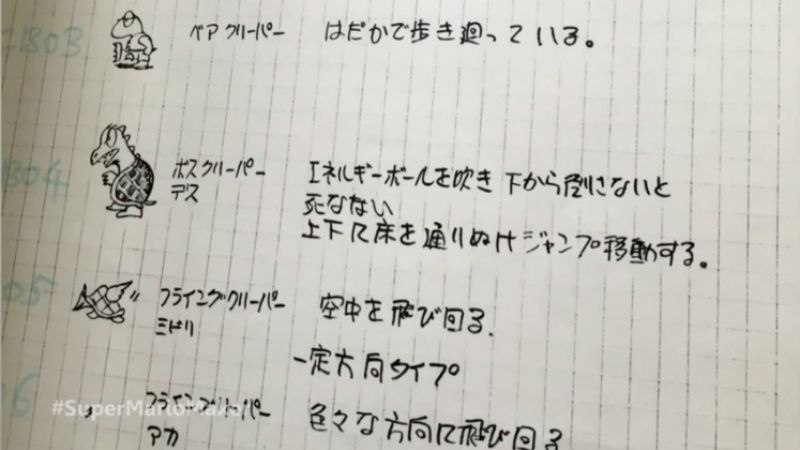 B03
ベアクリーパー はだかで歩き廻っている。
B04
ボスクリーパー エネルギーボールを吹き 下から倒さないと
デス 死なない
上下に床を通りぬけジャンプ移動する。
05
フライングクリーパー 空中を飛び回る.
ミドリ
一定方向タイプ
06
フライングクリーパー 色々な方向に飛び回る
アカ
#SuperMarioMaker